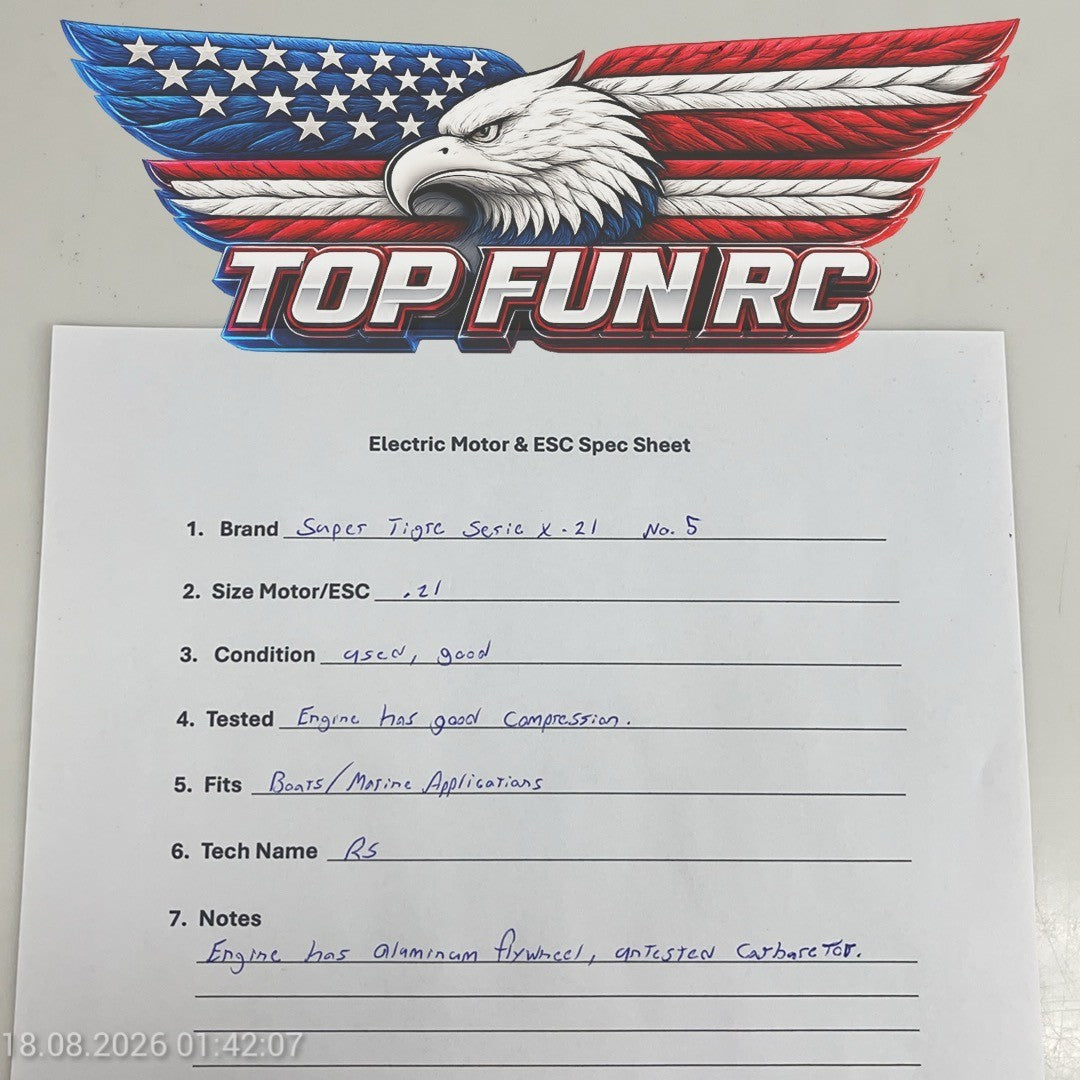 TOP FUN RC
Electric Motor & ESC Spec Sheet
1. Brand Super Tigre Serie X-21 No. 5
2. Size Motor/ESC .21
3. Condition used, good
4. Tested Engine has good compression.
5. Fits Boats/Marine Applications
6. Tech Name RS
7. Notes
Engine has aluminum flywheel, untested Carburetor.
18.08.2026 01:42:07